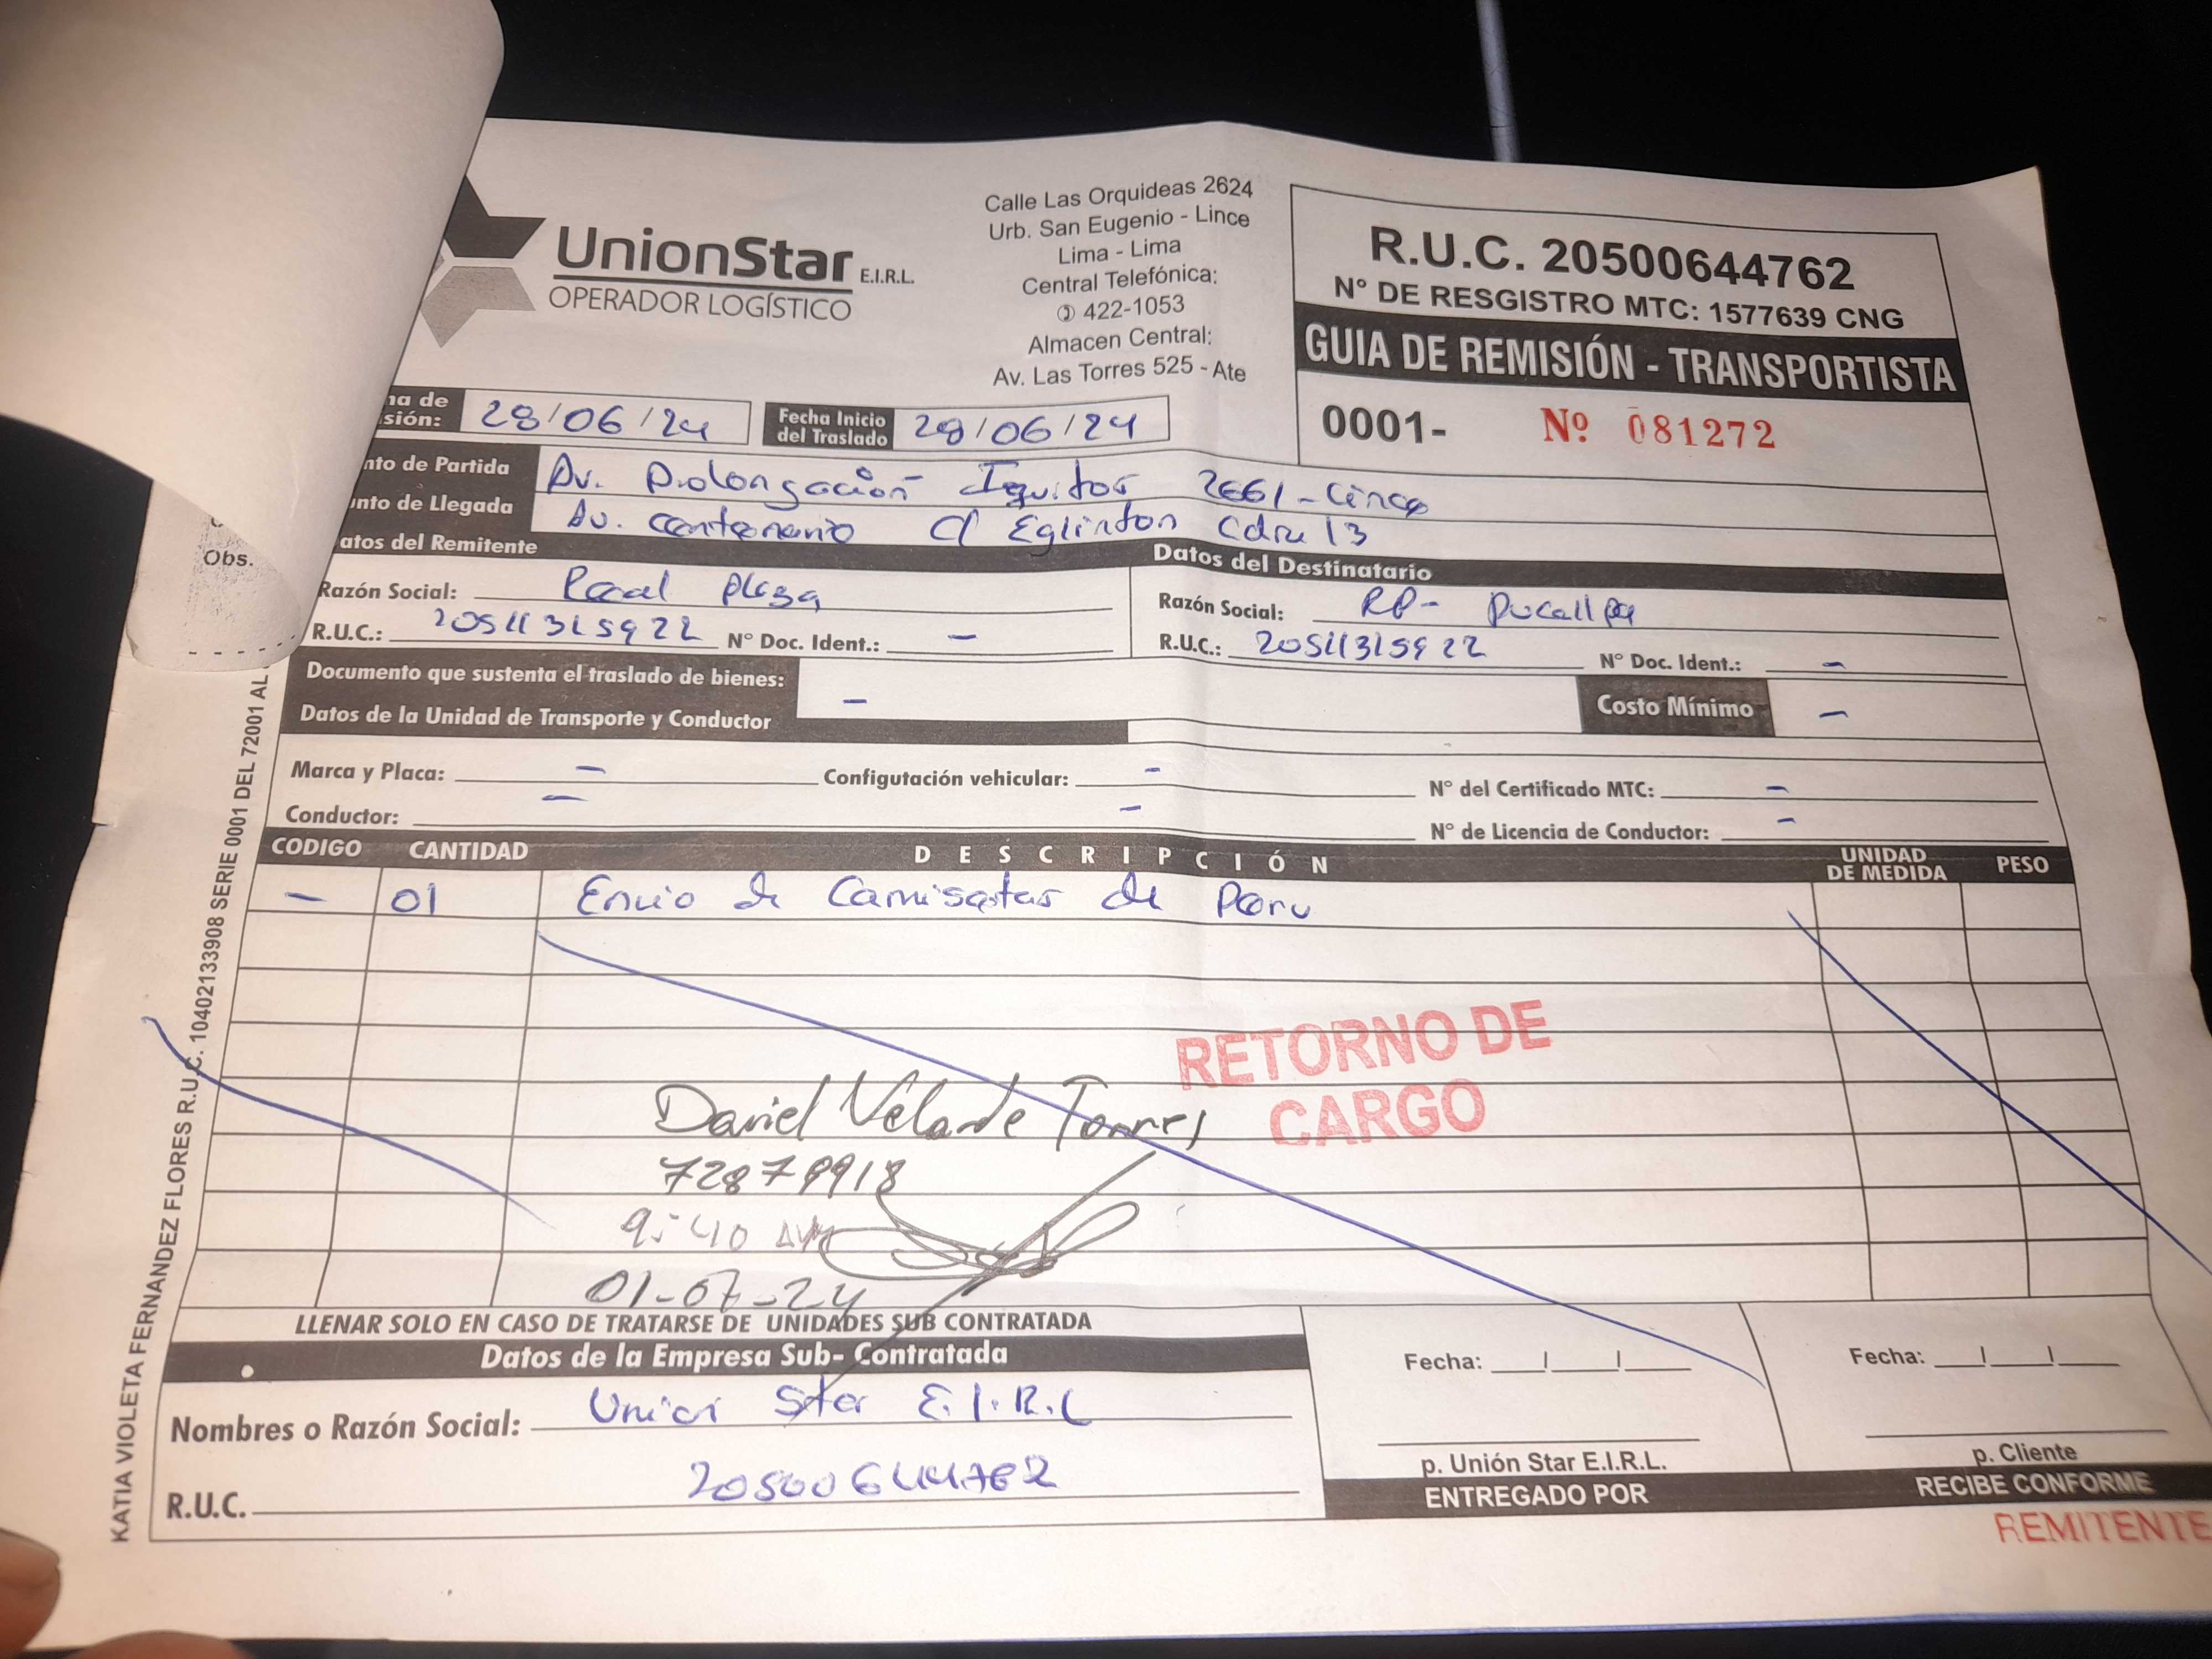 UnionStar E.I.R.L.
OPERADOR LOGÍSTICO
Calle Las Orquideas 2624
Urb. San Eugenio - Lince
Lima - Lima
Central Telefónica:
422-1053
Almacen Central:
Av. Las Torres 525 - Ate
R.U.C. 20500644762
N° DE RESGISTRO MTC: 1577639 CNG
GUIA DE REMISIÓN - TRANSPORTISTA
0001- Nº 081272
ha de
sión: 28/06/24 Fecha Inicio
del Traslado 28/06/24
nto de Partida Av. Prolongación Iquitos 2661 - Lince
unto de Llegada Av. centenario C/ Eglinton Cdra 13
atos del Remitente Datos del Destinatario
Obs.
Razón Social: Real plaza Razón Social: RP- Pucallpa
R.U.C.: 20511315922 N° Doc. Ident.: - R.U.C.: 20511315922 N° Doc. Ident.: -
Documento que sustenta el traslado de bienes: - Costo Mínimo -
Datos de la Unidad de Transporte y Conductor
Marca y Placa: - Configutación vehicular: - N° del Certificado MTC: -
Conductor: - - N° de Licencia de Conductor: -
CODIGO CANTIDAD DESCRIPCIÓN UNIDAD
DE MEDIDA PESO
- 01 Envio de Camisetas de Peru
RETORNO DE
CARGO
Daniel Velarde Torres
72879918
9:40 AM
01-07-24
LLENAR SOLO EN CASO DE TRATARSE DE UNIDADES SUB CONTRATADA
Datos de la Empresa Sub- Contratada
Nombres o Razón Social: Union Star E.I.R.L
R.U.C. 20500644762
Fecha: __/__/__ Fecha: __/__/__
p. Unión Star E.I.R.L. p. Cliente
ENTREGADO POR RECIBE CONFORME
REMITENTE
KATIA VIOLETA FERNANDEZ FLORES R.U.C. 10402133908 SERIE 0001 DEL 72001 AL